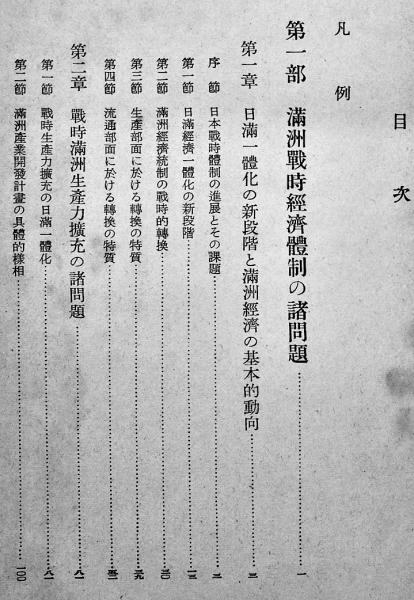 目次
凡例
第一部 滿洲戰時經濟體制の諸問題……………一
第一章 日滿一體化の新段階と滿洲經濟の基本的動向……………三
序節 日本戰時體制の進展とその課題……………三
第一節 日滿經濟一體化の新段階……………一三
第二節 滿洲經濟統制の戰時的轉換……………
第三節 生產部面に於ける轉換の特質……………
第四節 流通部面に於ける轉換の特質……………
第二章 戰時滿洲生產力擴充の諸問題……………八一
第一節 戰時生產力擴充の日滿一體化……………八一
第二節 滿洲產業開發計畫の具體的樣相……………一〇〇